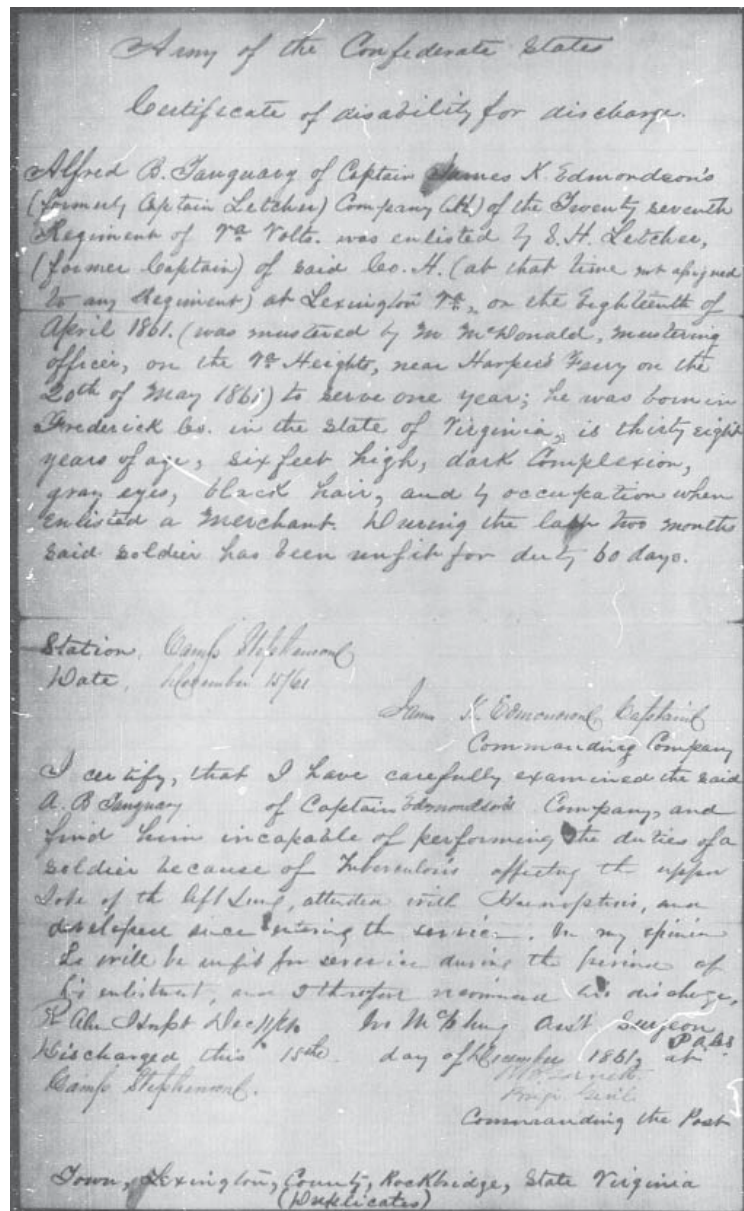 Army of the Confederate States
Certificate of disability for discharge.
Alfred B. Tanquary of Captain James K. Edmondson's
(formerly Captain Letcher) Company (H) of the Twenty seventh
Regiment of Va Volts. was enlisted by S. H. Letcher,
(former Captain) of said Co. H. (at that time not assigned
to any Regiment) at Lexington Va, on the Eighteenth of
April 1861. (was mustered by M McDonald, mustering
officer, on the Va Heights, near Harpers Ferry on the
20th of May 1861) to serve one year; he was born in
Frederick Co. in the State of Virginia, is thirty eight
years of age, six feet high, dark Complexion,
gray eyes, black hair, and by occupation when
enlisted a Merchant. During the last two months
said soldier has been unfit for duty 60 days.
Station, Camp Stephenson
Date, December 15/61
James K. Edmondson Captain
Commanding Company
I certify, that I have carefully examined the said
A. B Tanquary of Captain Edmondson's Company, and
find him incapable of performing the duties of a
soldier because of Tuberculosis affecting the upper
lobe of the left Lung, attended with Haemoptisis, and
developed since entering the service. In my opinion
he will be unfit for service during the period of
his enlistment, and I therefore recommend his discharge,
Dec Surgeon
P.A.C.S.
Discharged this 15th day of December 1861, at
Camp Stephenson.
Brig. Genl
Commanding the Post
Town, Lexington, County, Rockbridge, State Virginia
(Duplicates)